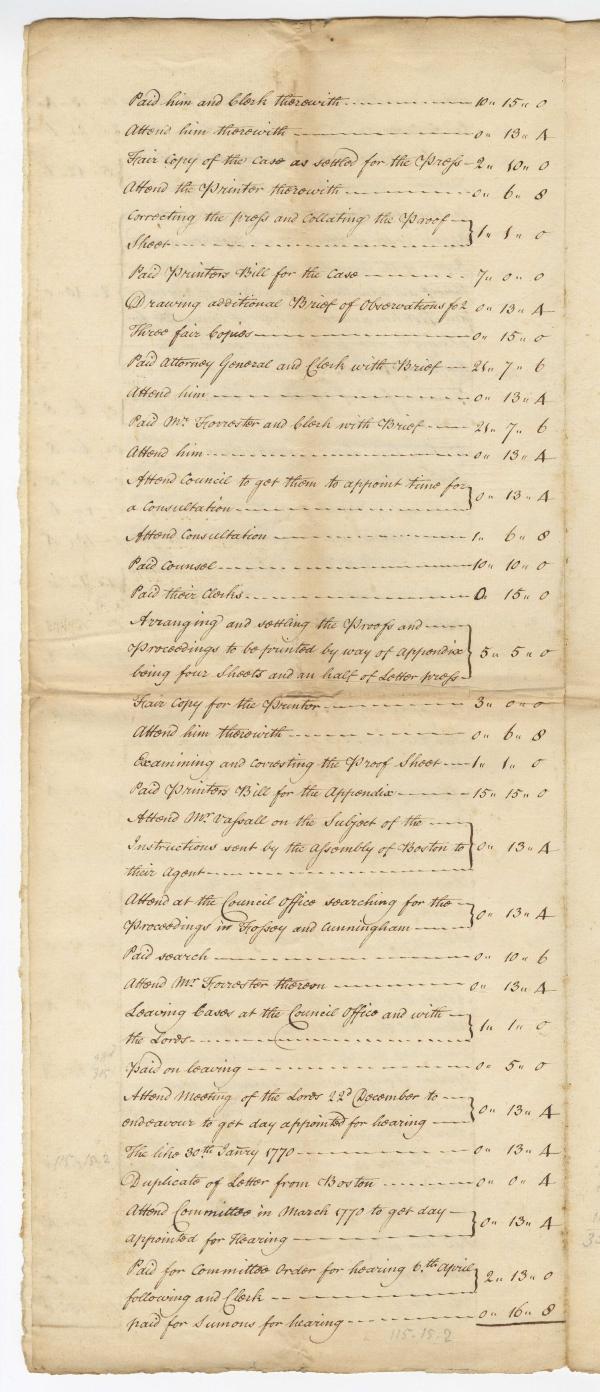 Paid him and Clerk therewith 10" 15" 0
Attend him therewith 0" 13" 4
Fair Copy of the Case as settled for the Press 2" 10" 0
Attend the Printer therewith 0" 6" 8
Correcting the press and Collating the Proof
Sheet } 1" 1" 0
Paid Printers Bill for the Case 7" 0" 0
Drawing additional Brief of Observations fo 2 0" 13" 4
Three fair Copies 0" 15" 0
Paid Attorney General and Clerk with Brief 21" 7" 6
Attend him 0" 13" 4
Paid Mr. Forrester and Clerk with Brief 21" 7" 6
Attend him 0" 13" 4
Attend Council to get them to appoint time for
a Consultation } 0" 13" 4
Attend Consultation 1" 6" 8
Paid Counsel 10" 10" 0
Paid their Clerks 0" 15" 0
Arranging and settling the Proofs and
Proceedings to be printed by way of Appendix
being four Sheets and an half of Letter press } 5" 5" 0
Fair Copy for the Printer 3" 0" 0
Attend him therewith 0" 6" 8
Examining and correcting the Proof Sheet 1" 1" 0
Paid Printers Bill for the Appendix 15" 15" 0
Attend Mr. Vassall on the Subject of the
Instructions sent by the Assembly of Boston to
their Agent } 0" 13" 4
Attend at the Council Office searching for the
Proceedings in Fossey and Cunningham } 0" 13" 4
Paid search 0" 10" 6
Attend Mr. Forrester thereon 0" 13" 4
Leaving Cases at the Council Office and with
the Lords } 1" 1" 0
Paid on leaving 0" 5" 0
Attend Meeting of the Lords 22d December to
endeavour to get day appointed for hearing } 0" 13" 4
The like 30th Janry 1770 0" 13" 4
Duplicate of Letter from Boston 0" 0" 4
Attend Committee in March 1770 to get day
appointed for Hearing } 0" 13" 4
Paid for Committee Order for hearing 6th April
following and Clerk } 2" 13" 0
paid for Sumons for hearing 0" 16" 8
115-15-2